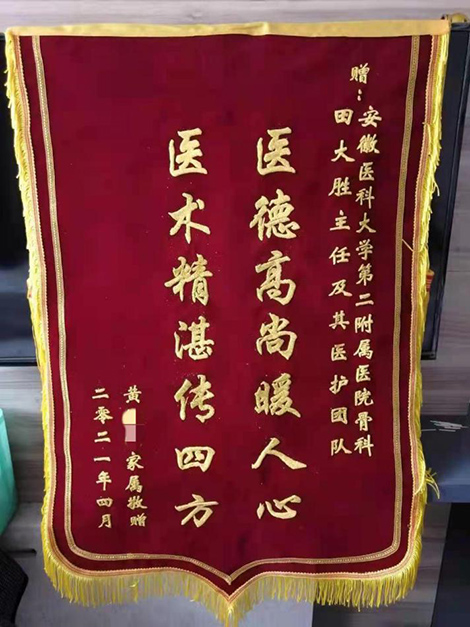 赠：安徽医科大学第二附属医院骨科
田大胜主任及其医护团队
医德高尚暖人心
医术精湛传四方
黄 家属敬赠
二零二一年四月